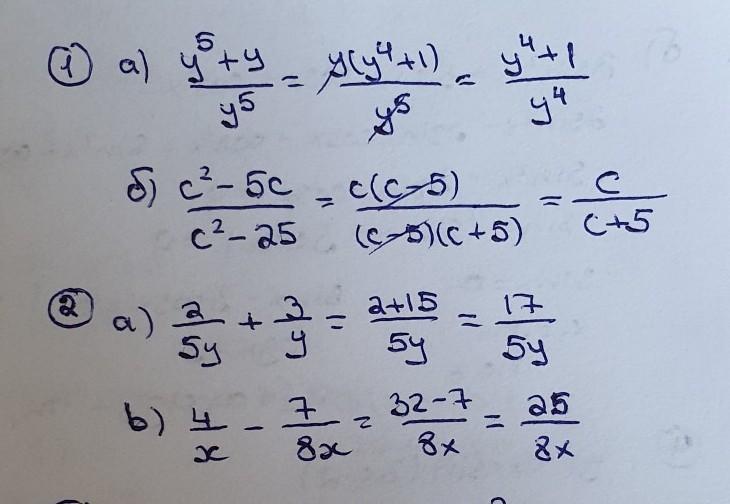 ① а) (y⁵+y)/y⁵ = y(y⁴+1)/y⁵ = (y⁴+1)/y⁴
б) (c²-5c)/(c²-25) = c(c-5)/((c-5)(c+5)) = c/(c+5)
② а) 2/(5y) + 3/y = (2+15)/(5y) = 17/(5y)
b) 4/x - 7/(8x) = (32-7)/(8x) = 25/(8x)